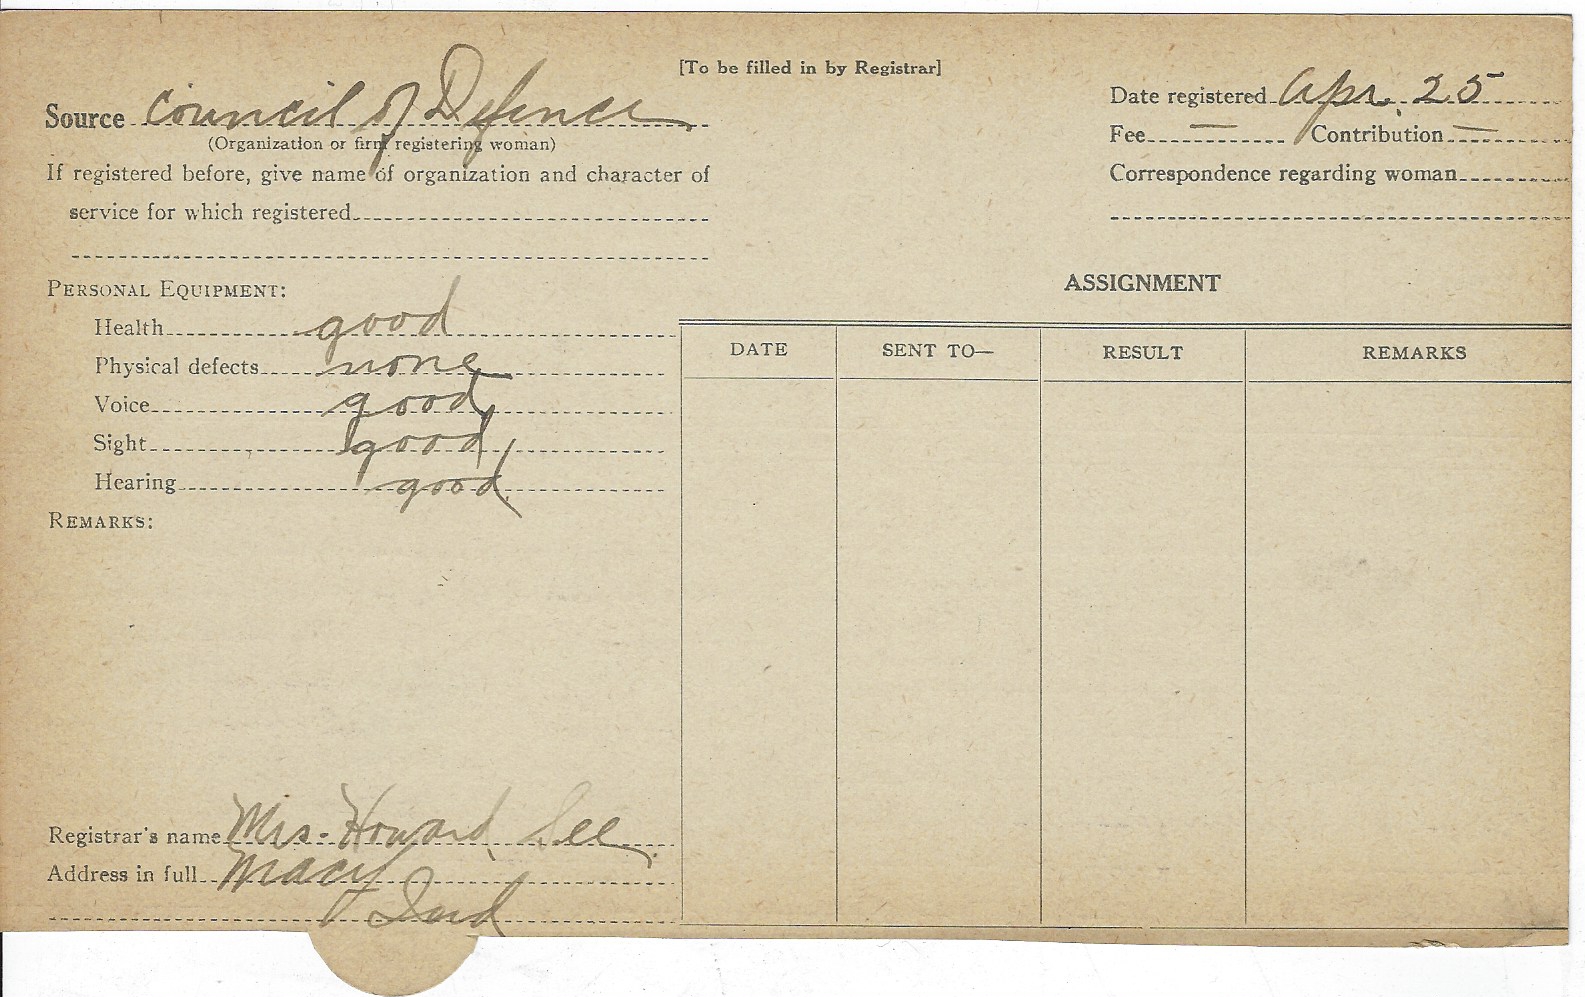 [To be filled in by Registrar]
Source Council of Defence
(Organization or firm registering woman)
If registered before, give name of organization and character of
service for which registered
PERSONAL EQUIPMENT:
Health good
Physical defects none
Voice good
Sight good
Hearing good
REMARKS:
Registrar's name Mrs. Howard See
Address in full Macy
Ind
Date registered Apr. 25
Fee — Contribution —
Correspondence regarding woman
ASSIGNMENT
DATE SENT TO— RESULT REMARKS